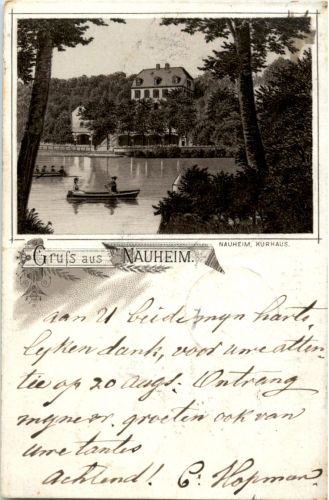 NAUHEIM, KURHAUS.
Gruſs aus NAUHEIM.
aan U beide myn harte
lyken dank, voor uwe atten
tie op 20 Augs. Ontvang
myne groeten ook van
uwe tantes
achtend! C. Hopman.